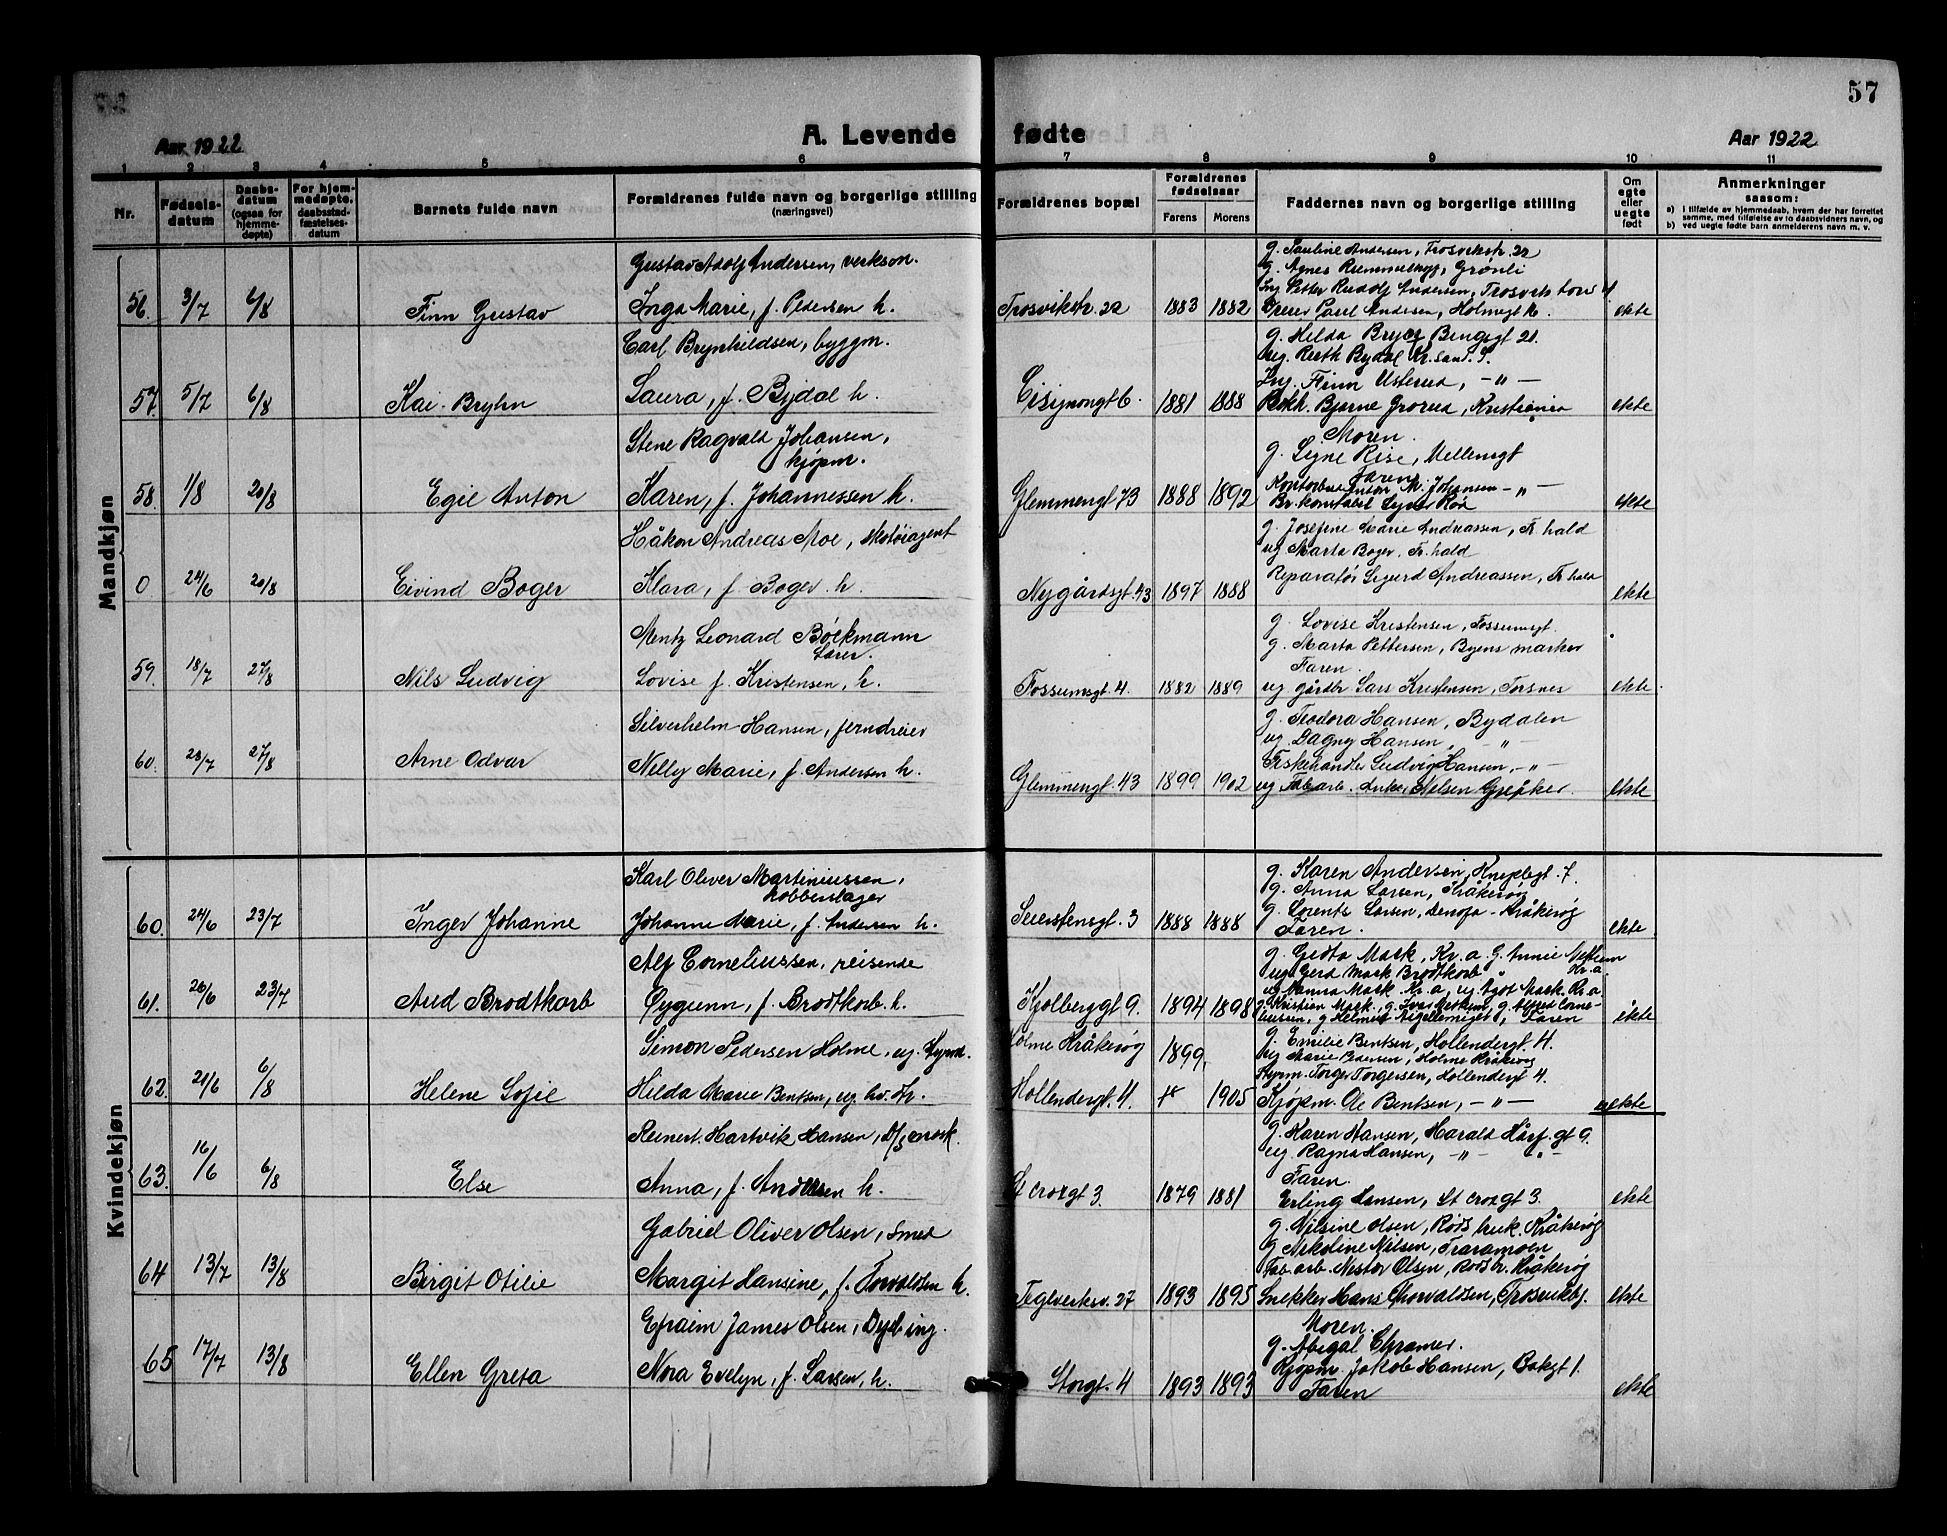 57
Aar 1922
A. Levende fødte
Aar 1922
1 2 3 4 5 6 7 8 9 10 11
Nr.
Fødsels-
datum
Daabs-
datum
(ogsaa for
hjemme-
døpte)
For hjem-
medøpte,
daabsstad-
fæstelses-
datum
Barnets fulde navn
Forældrenes fulde navn og borgerlige stilling
(næringsvei)
Forældrenes bopæl
Forældrenes
fødselsaar
Farens Morens
Faddernes navn og borgerlige stilling
Om
egte
eller
uegte
født
Anmerkninger
saasom:
a) i tilfælde av hjemmedaab, hvem der har forrettet
samme, med tilføielse av to daabsvidners navn, og
b) ved uegte fødte barn anmelderens navn m. v.
Mandkjøn
Gustav Adolf Andersen, verksm.
g. Pauline Andersen, Trosvikstr. 22
g. Agnes Remmenbygg, Grønli
Petter Rudolf Andersen, Trosvik
56. 3/7 6/8 Finn Gustav Inga Marie, f. Pedersen h. Trosvikstr. 22 1883 1882 Paul Andersen, Holmegt 16. ekte
Carl Brynhildsen, byggm.
g. Hilda Bryer Bengegt 21.
ug. Ruth Bydal Kr.sand. S.
Ing. Finn Usterud, -"-
57. 5/7 6/8 Kai-Bryhn Laura, f. Bydal h. Cisignongt 6. 1881 1888 Bokh. Bjarne Grorud, Kristiania ekte
Stene Ragvald Johansen,
kjøpm.
Moren.
g. Signe Riise, Mellemgt
Faren
Anton M. Johansen -"-
58. 1/8 20/8 Egil Anton Karen, f. Johannessen h. Glemmengt 73 1888 1892 Br. konstabel ekte
Håkon Andreas Moe, Skotøiagent
g. Josefine Marie Andreassen, Fr.hald
ug Marta Boger, Fr.hald
0 24/6 20/8 Eivind Boger Klara, f. Boger. h. Nygårdsgt. 43 1897 1888 Reparatør Sigurd Andreassen, Fr.hald ekte
Mentz Leonard Bøckmann
Lærer.
g. Lovise Kristensen, Fossumsgt.
g. Marta Pettersen, Byens marker
Faren.
59. 18/7 27/8 Nils Ludvig Lovise f. Kristensen, h. Fossumsgt. 4. 1882 1889 ug gårdbr Lars Kristensen, Torsnes ekte
Silverhelm Hansen, jerndreier
g. Teodora Hansen, Bydalen
ug. Dagny Hansen, -"-
Fiskehandler Ludvig Hansen, -"-
60. 23/7 27/8 Arne Odvar Nelly Marie, f. Andersen h. Glemmengt. 43 1899 1902 ug Fabarb. Nilsen Greåker. ekte
Kvindekjøn
Karl Oliver Martiniussen,
kobberslager
g. Karen Andersen, Kniplegt 7.
g. Anna Larsen, Kråkerøy
g. Lorents Larsen, Denofa - Kråkerøy
60. 24/6 23/7 Inger Johanne Johanne Marie, f. Andersen h. Seierstensgt. 3 1888 1888 Faren. ekte
Alf Corneliussen, reisende
g. Gidta Mark, Kr.a. G. Annie Methum
ug. Gerd Mark Brodtkorb " Kr.a.
ug Nanna Mark. Kr.a, ug Agot Mark. Kr.a
61. 26/6 23/7 Aud Brodtkorb Øygunn, f. Brodtkorb. h. Kjølberggt 9. 1894 1898 Kristien Mark, g. Ivar Methum, g. Alfred Corne-
liussen, g Helmer, Faren ekte
Simon Pedersen Holme, ug.
Holme Kråkerøy 1899,
g. Emilie Bentsen, Hollendergt. 4.
ug Marie Pedersen, Holme Kråkerøy
Styrm. Torger Torgersen, Hollendergt 4.
62. 21/6 6/8 Helene Sofie Hilda Marie Bentsen, ug. Hollendergt. 4. 1905 Kjøpm. Ole Bentsen, -"- uekte
Reinert Hartvik Hansen, D/S mask.
g. Karen Hansen, Harald Hårf. gt 9.
ug. Ragna Hansen, -"- -"-
Faren.
63. 16/6 6/8 Else Anna, f. Andersen h. St croxgt 3. 1879 1881 Erling Hansen, St croxgt 3. ekte
Gabriel Oliver Olsen, Smed
g. Nilsine Olsen, Røds bruk. Kråkerøy
g Nikoline Nilsen, Traramoen
Fab. arb. Nestor Olsen, Røds br. Kråkerøy
64 13/7 13/8 Birgit Otilie Margit Hansine, f. Torvaldsen h. Teglverksv. 27 1893 1895 Snekker Hans Thorvaldsen, Trosvikbg. ekte
Efraim James Olsen, ing.
Moren.
g. Abigal Chramer.
Kjøpm. Jakob Hansen, Bakgt 1.
65 17/7 13/8 Ellen Greta Nora Evelyn, f. Larsen, h. Storgt. 4 1893 1893 Faren ekte